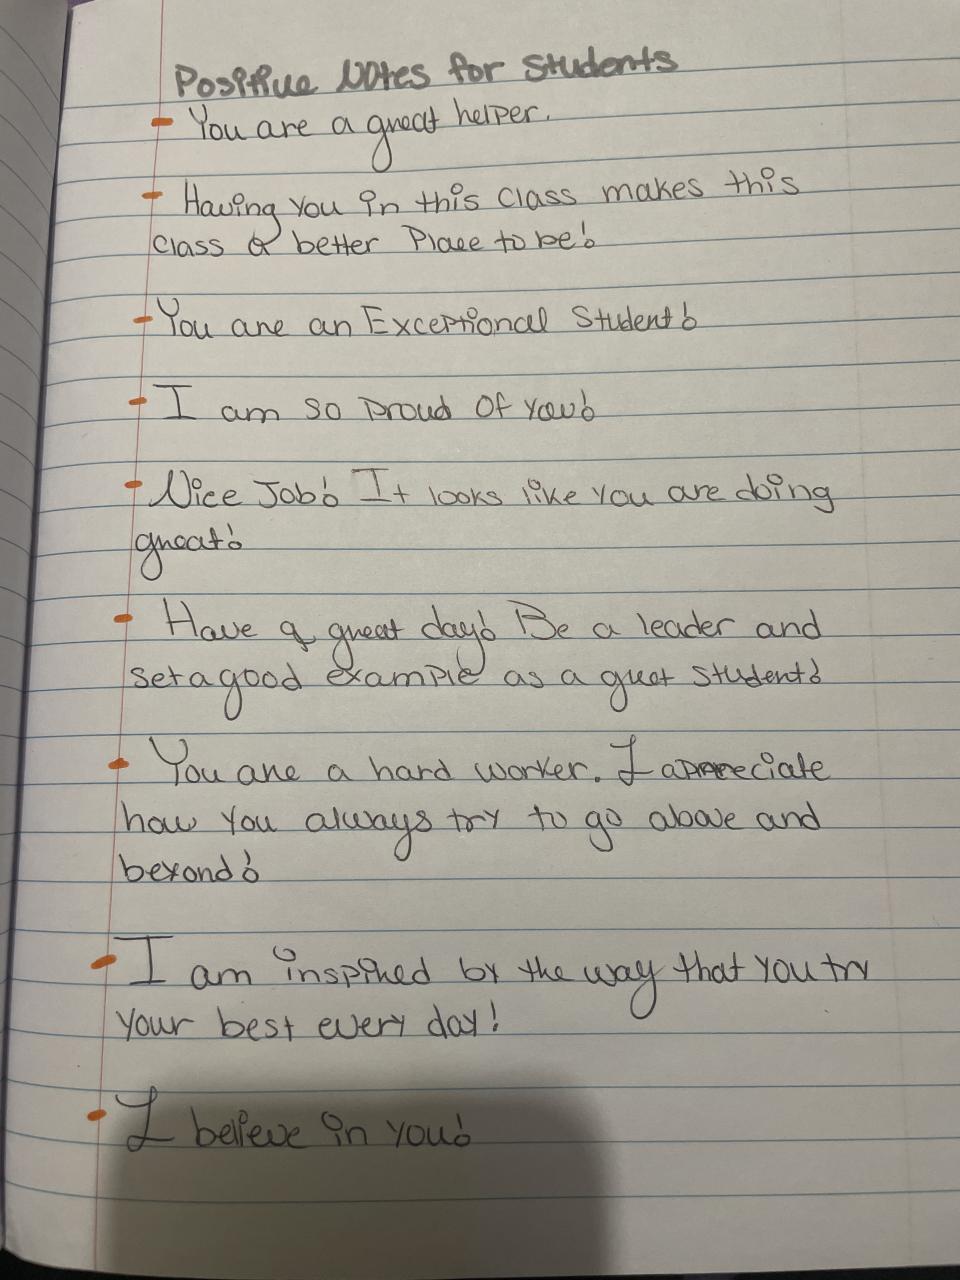 Positive Notes for Students
- You are a great helper.
- Having you in this class makes this
class a better Place to be!
- You are an Exceptional Student!
- I am so proud of you!
- Nice Job! It looks like you are doing
great!
- Have a great day! Be a leader and
set a good example as a great student!
- You are a hard worker. I appreciate
how you always try to go above and
beyond!
- I am inspired by the way that you try
your best every day!
- I believe in you!